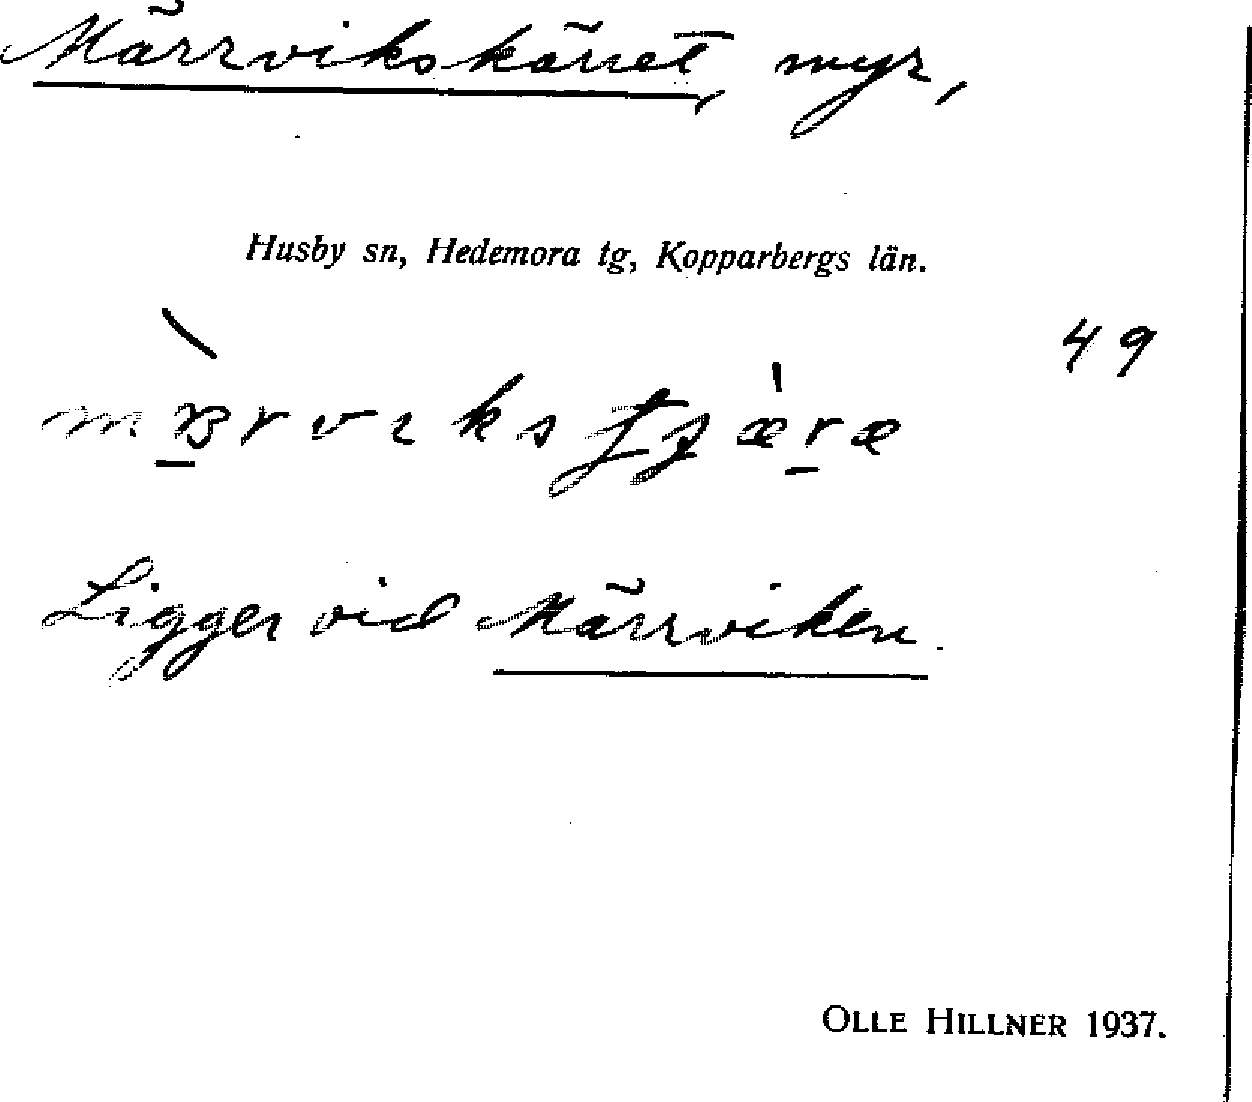 Märrvikskärret, myr,
Husby sn, Hedemora tg, Kopparbergs län.
49
Ligger vid Märrviken.
OLLE HILLNER 1937.